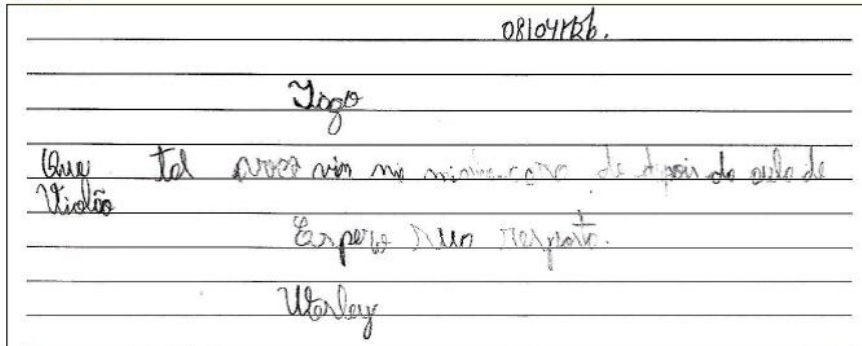 Iago
Que tal voce vim na minha casa de depois da aula de
Violão
Espero sua resposta.
Warley